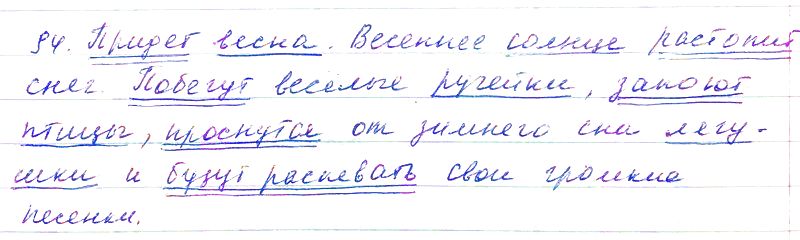 94. Придет весна. Весеннее солнце растопит
снег. Побегут веселые ручейки, запоют
птицы, проснутся от зимнего сна лягу-
шки и будут распевать свои громкие
песенки.